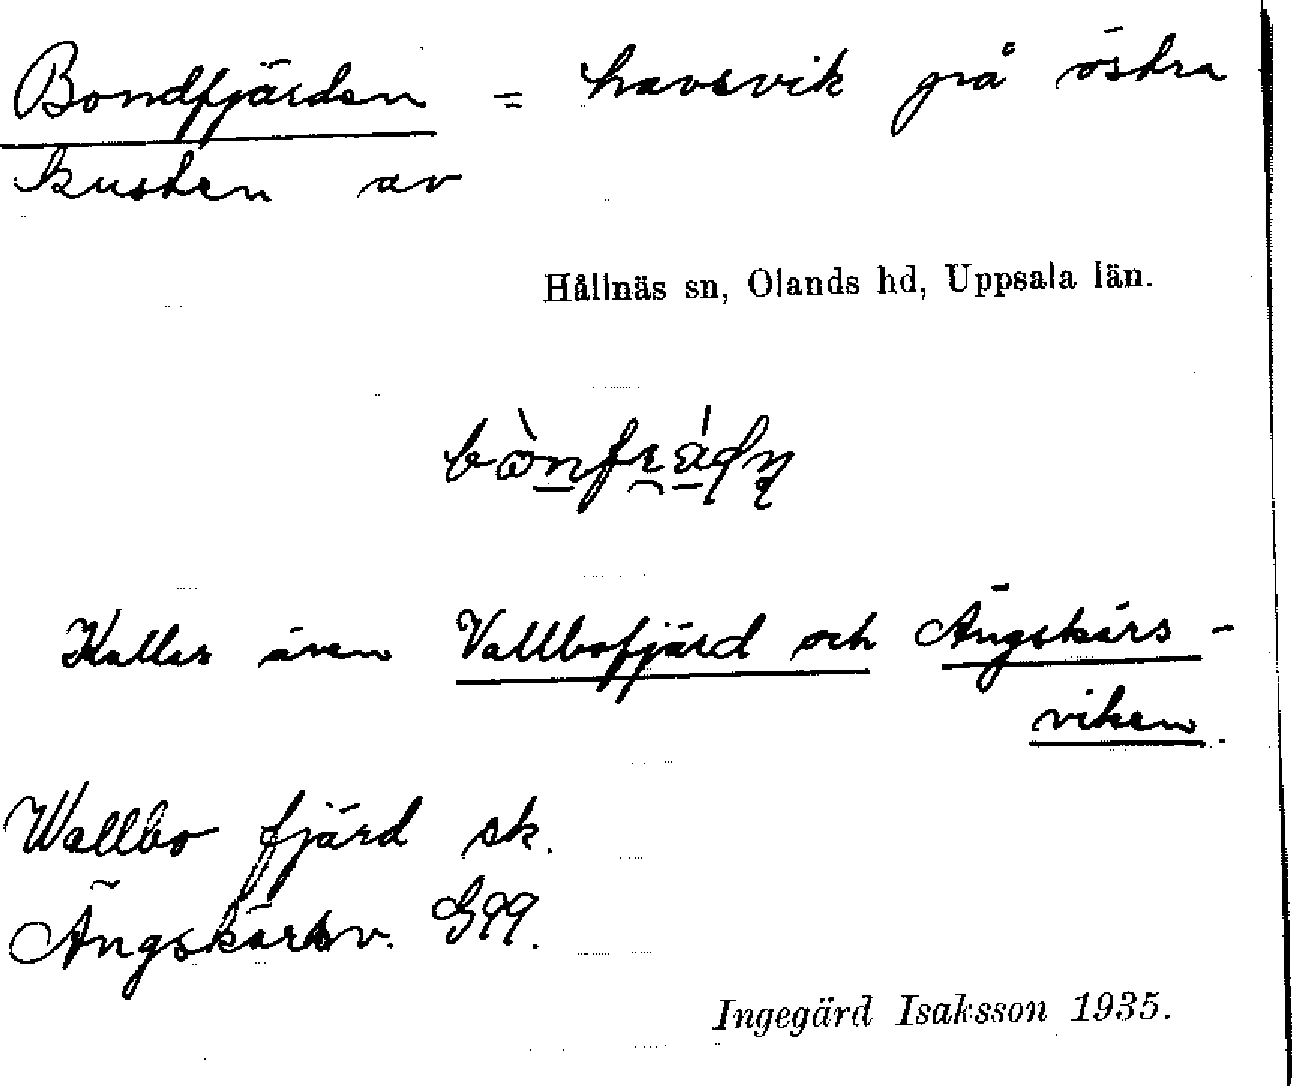 Bondfjärden = havsvik på östra
kusten av
Hållnäs sn, Olands hd, Uppsala län.
Kallas även Vallbofjärd och Ängskärs-
viken.
Wallbo fjärd sk.
Ängskärsv. G99.
Ingegärd Isaksson 1935.